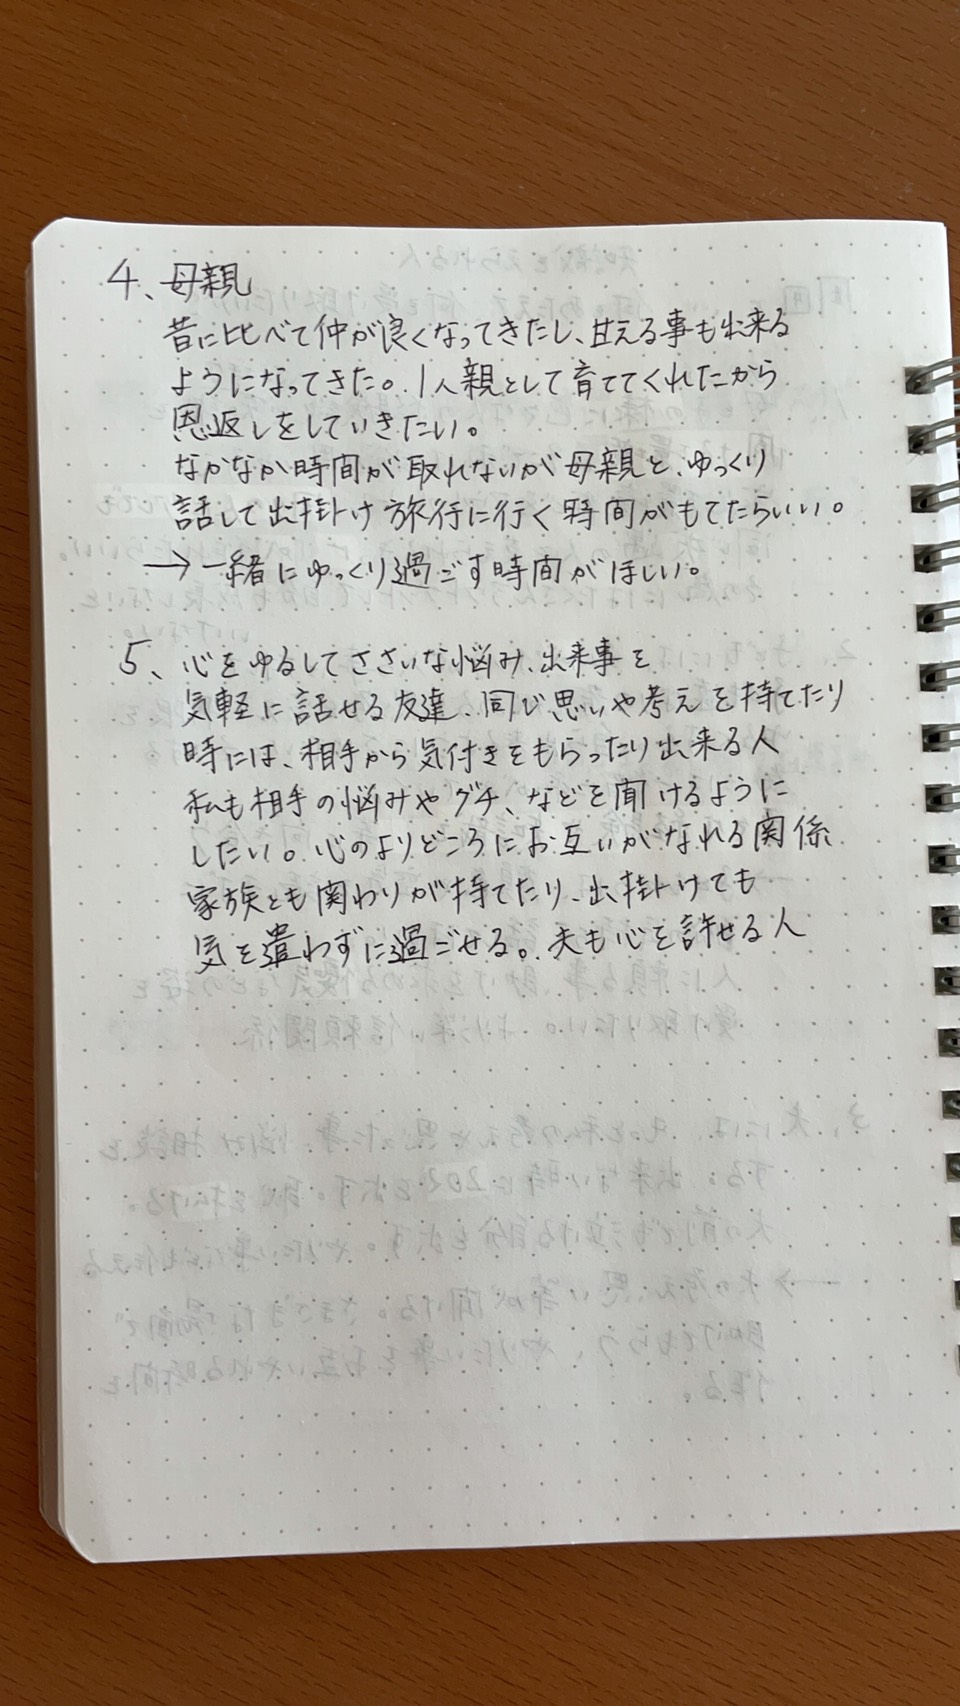 4、母親
昔に比べて仲が良くなってきたし、甘える事も出来る
ようになってきた。1人親として育ててくれたから
恩返しをしていきたい。
なかなか時間が取れないが母親と、ゆっくり
話して出掛け旅行に行く時間がもてたらいい。
→一緒にゆっくり過ごす時間がほしい。
5、心をゆるしてささいな悩み、出来事を
気軽に話せる友達、同じ思いや考えを持てたり
時には、相手から気付きをもらったり出来る人
私も相手の悩みやグチ、などを聞けるように
したい。心のよりどころにお互いがなれる関係
家族とも関わりが持てたり、出掛けても
気を遣わずに過ごせる。夫も心を許せる人